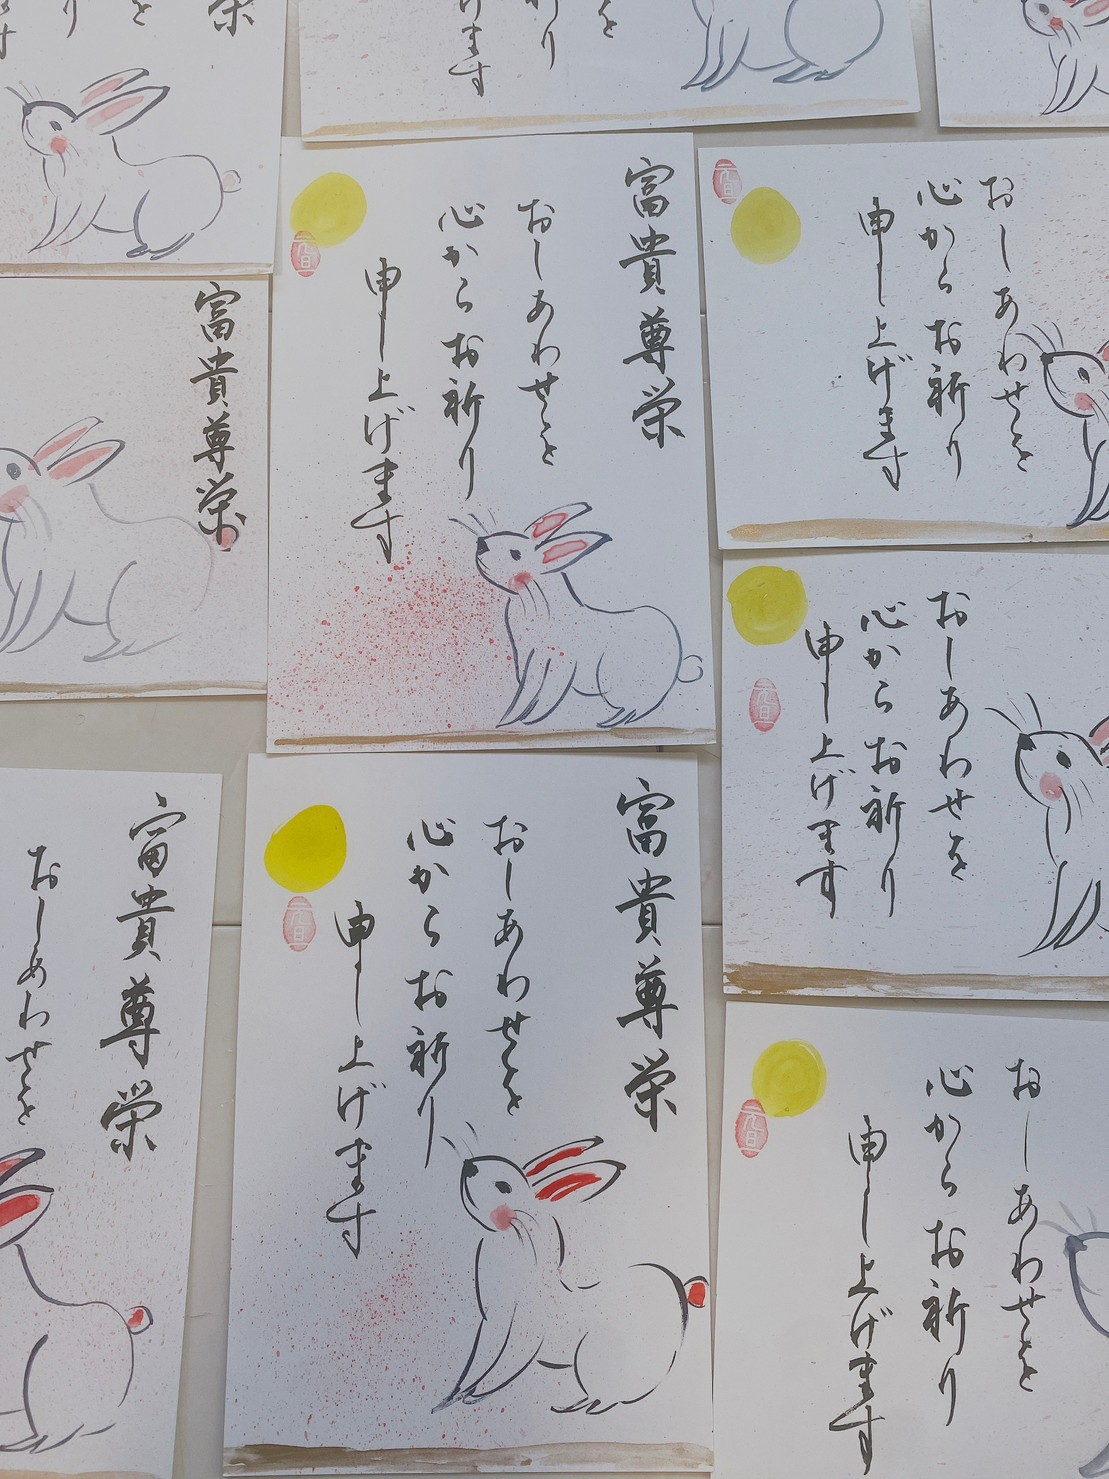 栄
を
り
す
を
り
げます
富貴尊栄
おしあわせを
心からお祈り
申し上げます
元旦
おしあわせを
心からお祈り
申し上げます
元旦
富貴尊栄
おしあわせを
心からお祈り
申し上げます
元旦
富貴尊栄
おしあわせを
富貴尊栄
おしあわせを
心からお祈り
申し上げます
元旦
おしあわせを
心からお祈り
申し上げます
元旦